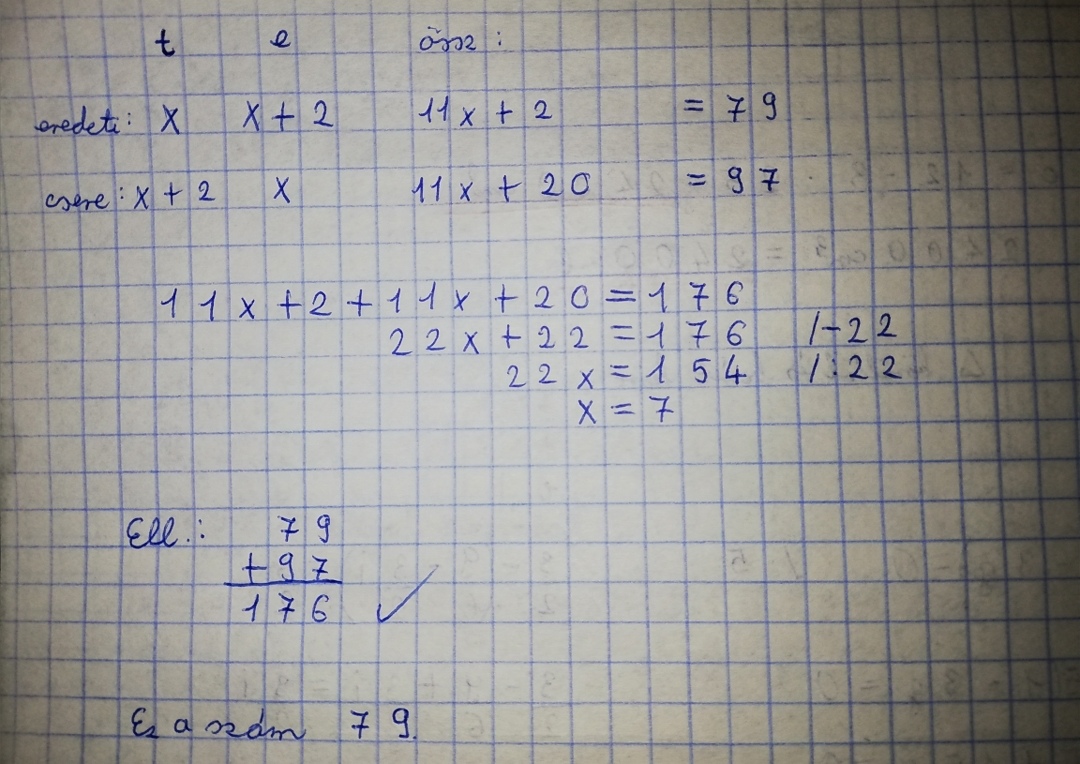 t e össz:
eredeti: x x+2 11x+2 = 79
csere: x+2 x 11x+20 = 97
11x+2+11x+20=176
22x+22=176 /-22
22x=154 /:22
x=7
Ell.: 79
+97
176 ✓
Ez a szám 79.